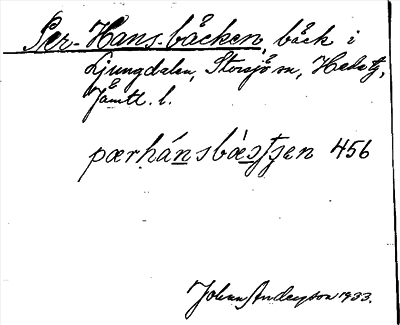 Per-Hans-bäcken, bäck i
Ljungdalen, Storsjö sn, Hede tg,
Jämtl. l.
pærhánsbæ̀ʃʃen 456
Johan Anderson 1933.